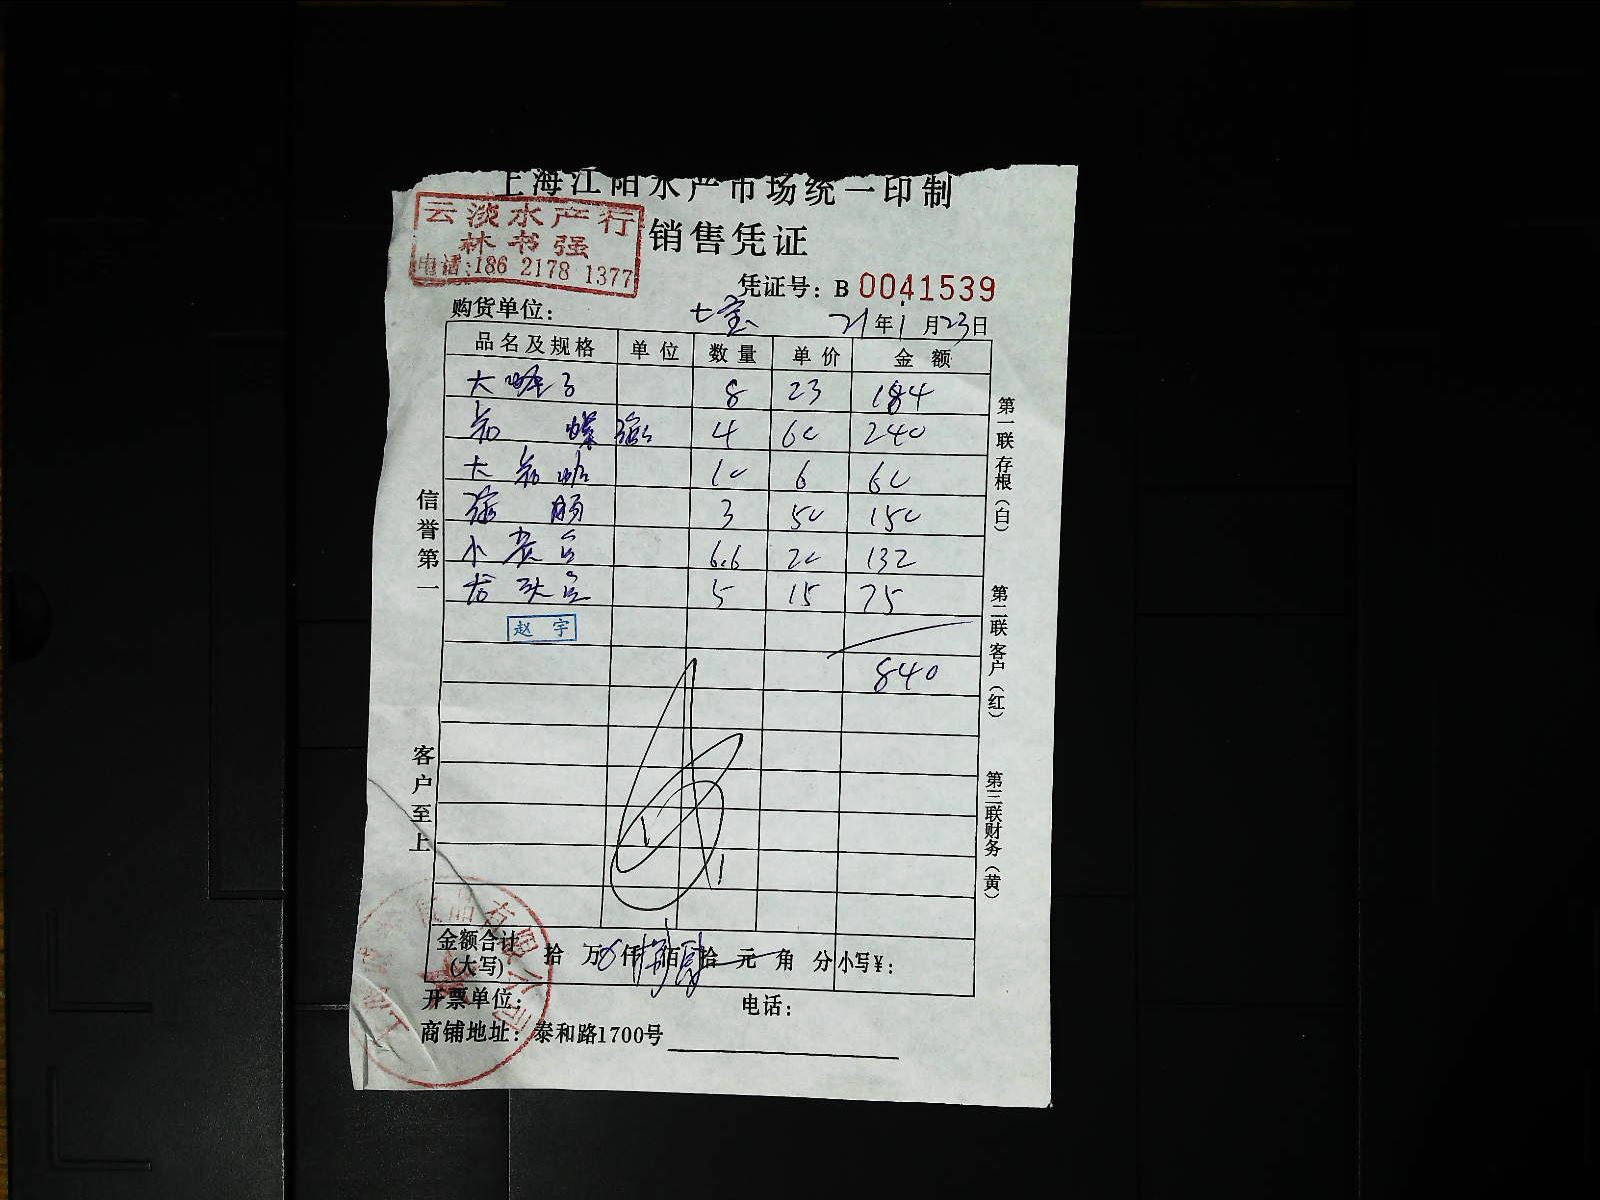 上海江阳水产市场统一印制
云淡水产行
林书强
电话:186 2178 1377
销售凭证
凭证号：B 0041539
购货单位： 七宝 21年1月23日
品名及规格 单位 数量 单价 金额
大蛏子 8 23 184
4 60 240
大 10 6 60
3 50 150
小黄鱼 6.6 20 132
龙头鱼 5 15 75
赵宇
840
信誉第一
客户至上
第一联存根（白）
第二联客户（红）
第三联财务（黄）
金额合计 拾 万 仟 佰 拾 元 角 分 小写¥：
(大写)
开票单位： 电话：
商铺地址：泰和路1700号
有限公司